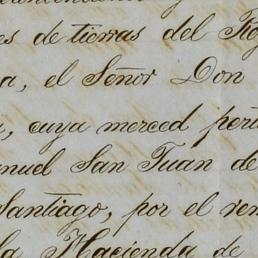 es de tierras del
a, el Señor Don
, cuya merced
nuel San Juan de
Santiago, por el
la Hacienda de